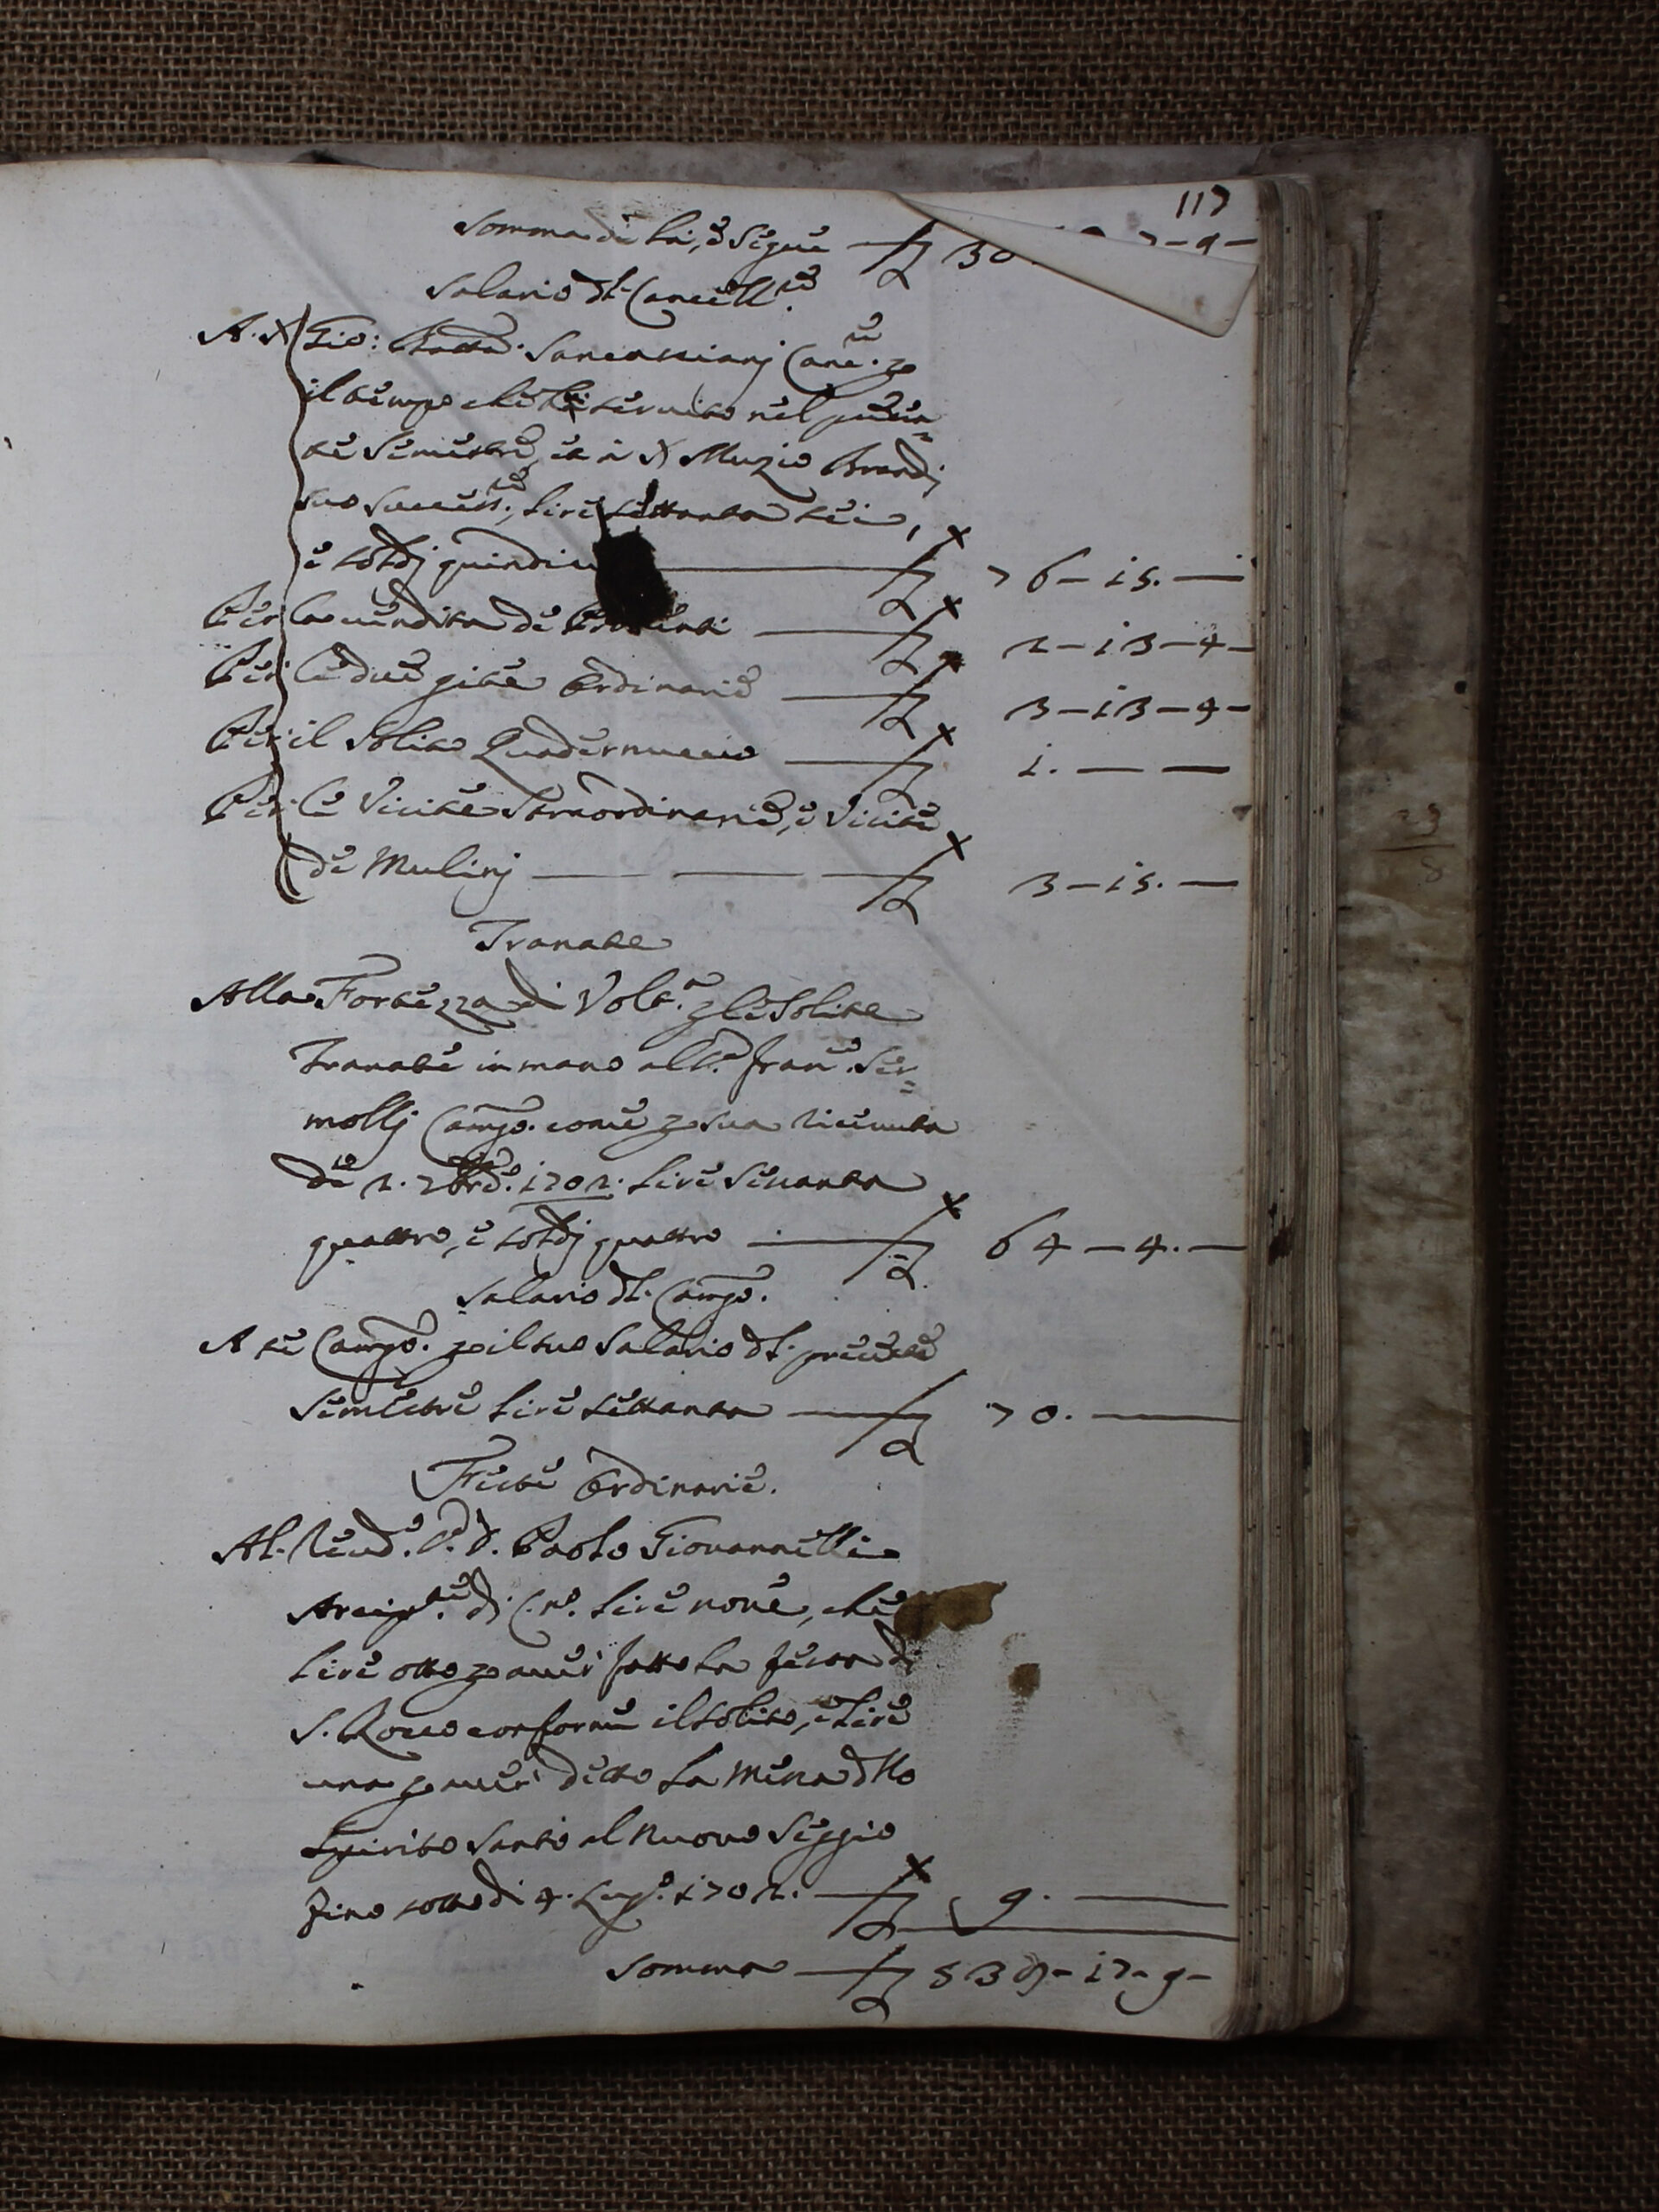 117
Somma di là, e Segue £ 30
Salario dl. Cancell.re
A. S. Gio: Batta. Canc.re p
il tempo che ha servito nel presen=
te Semestre, et à S. Muzio Brandj
suo Success.re, Lire settanta sei,
e soldj quindici £ 76 - 15. —
Per la vendita de Proventi £ 2 - 13 - 4 -
Per le due gite Ordinarie £ 3 - 13 - 4 -
Per il Solito Quadernuccio £ 1. — —
Per le Vicite Straordinarie, e Vicite
de Mulinj £ 3 - 15. —
Tranate
Alla Fortezza di Volt.a p le Solite
Tranate in mano all S.r Fran.co Ser=
mollj Camg.o come p sua ricevuta
de 2. 7bre. 1702. Lire Sessanta
quattro, e soldj quattro £ 64 - 4. —
Salario dl. Camg.o
A se Camg.o p il suo Salario dl. presente
Semestre Lire settanta £ 70. —
Feste Ordinarie.
Al. Reud.o S. D. Paolo Giovannelli
Arcip.te dj C.no. Lire nove, che
Lire otto p aver fatto la festa di
S. Rocco conforme il solito, e Lire
una p aver detto la Messa dllo
Spirito Santo al nuovo Seggio
fino sotto di 4. Lug.o 1702. £ 9. —
Somma £ 539 - 17 - 9 -